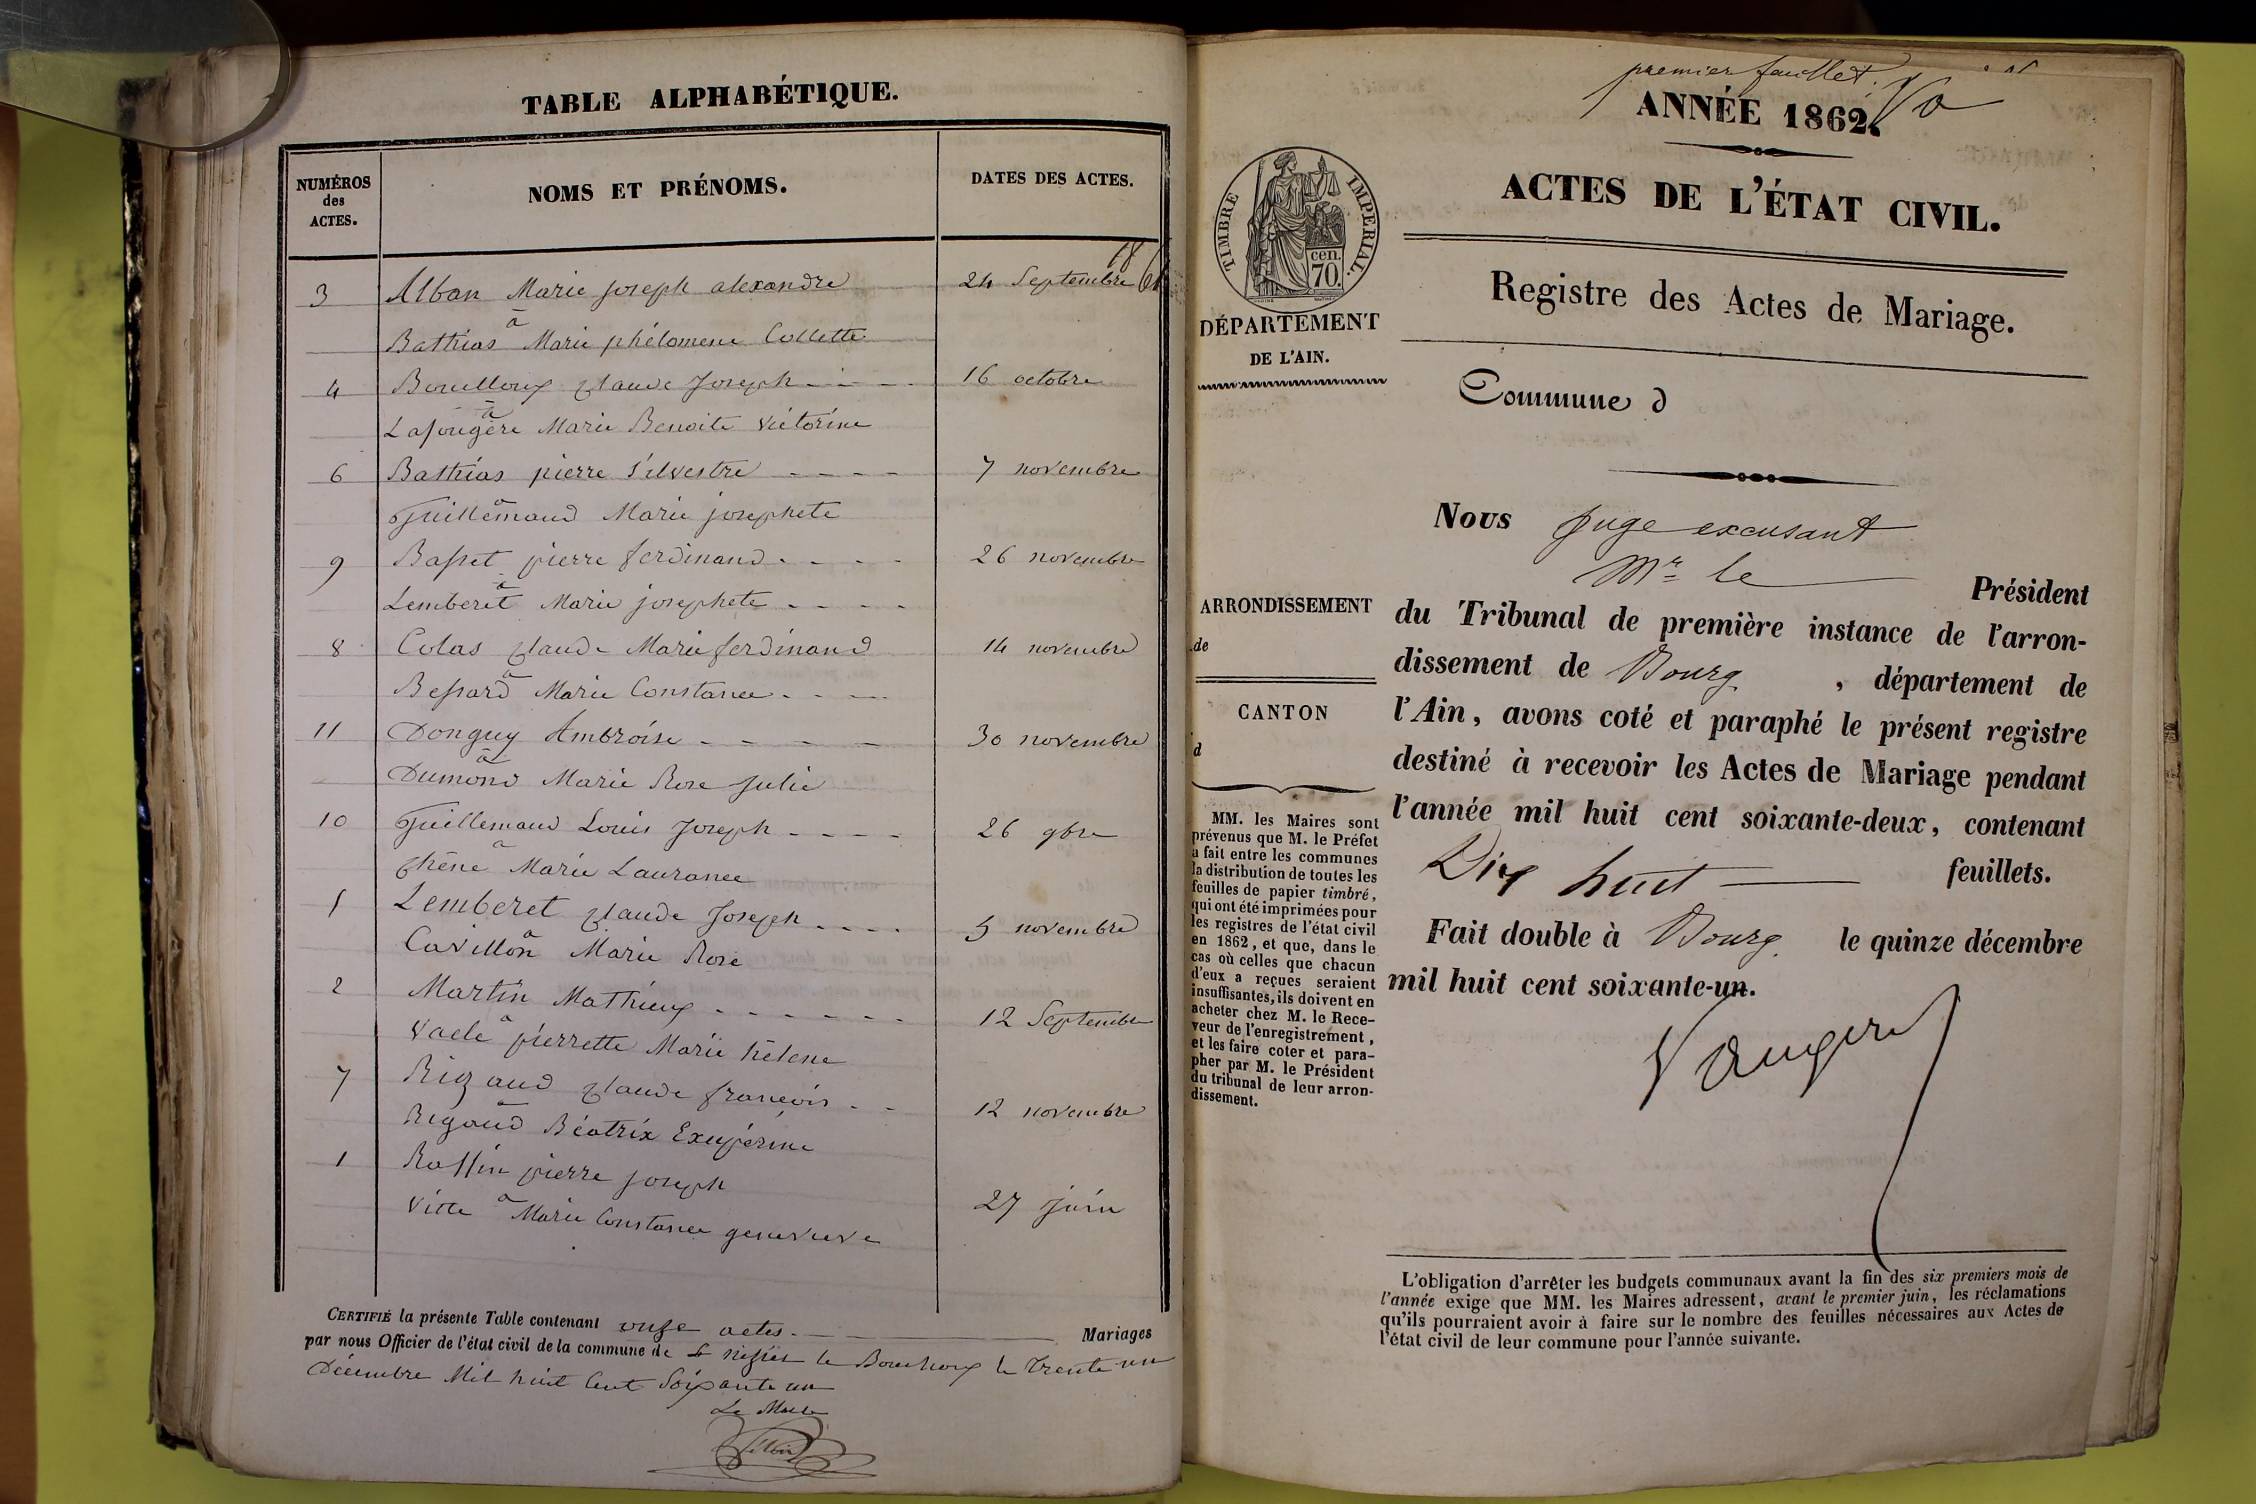 TABLE ALPHABÉTIQUE.
NUMÉROS
des
ACTES.
NOMS ET PRÉNOMS.
DATES DES ACTES.
1861
3 Alban Marie joseph alexandre 24 Septembre
à
Bathias Marie phélomene Collette
4 Bouilloux Claude Joseph 16 octobre
à
Lafougère Marie Benoite Victorine
6 Bathias pierre Silvestre 7 novembre
à
Guillemaud Marie josephete
9 Basset pierre ferdinand 26 novembre
à
Lemberet Marie josephete
8 Colas Claude Marie ferdinand 14 novembre
à
Bessard Marie Constance
11 Donguy Ambroise 30 novembre
à
Dumond Marie Rose Julie
10 Guillemaud Louis Joseph 26 9bre
à
Chêne Marie Laurance
5 Lemberet Claude Joseph 5 novembre
à
Cavillon Marie Rose
2 Martin Mathieux 12 Septembre
à
pierrette Marie hélene
7 Rigaud Claude françois 12 novembre
à
Rigaud Béatrix Exupérine
1 Roffin pierre joseph
à
Vitte Marie Constance genevieve 27 juin
CERTIFIÉ la présente Table contenant onze actes. Mariages
par nous Officier de l'état civil de la commune de St nizier le Bouchoux le Trente un
Décembre Mil huit Cent Soixante un
Le Maire
premier feuillet. Vo
ANNÉE 1862.
ACTES DE L'ÉTAT CIVIL.
TIMBRE IMPERIAL.
cen.
70.
Registre des Actes de Mariage.
DÉPARTEMENT
DE L'AIN.
Commune d
Nous juge excusant
Mr le Président
du Tribunal de première instance de l'arron-
dissement de Bourg , département de
l'Ain, avons coté et paraphé le présent registre
destiné à recevoir les Actes de Mariage pendant
l'année mil huit cent soixante-deux, contenant
Dix huit feuillets.
Fait double à Bourg le quinze décembre
mil huit cent soixante-un.
ARRONDISSEMENT
de
CANTON
d
MM. les Maires sont
prévenus que M. le Préfet
a fait entre les communes
la distribution de toutes les
feuilles de papier timbré,
qui ont été imprimées pour
les registres de l'état civil
en 1862, et que, dans le
cas où celles que chacun
d'eux a reçues seraient
insuffisantes, ils doivent en
acheter chez M. le Rece-
veur de l'enregistrement,
et les faire coter et para-
pher par M. le Président
du tribunal de leur arron-
dissement.
L'obligation d'arrêter les budgets communaux avant la fin des six premiers mois de
l'année exige que MM. les Maires adressent, avant le premier juin, les réclamations
qu'ils pourraient avoir à faire sur le nombre des feuilles nécessaires aux Actes de
l'état civil de leur commune pour l'année suivante.